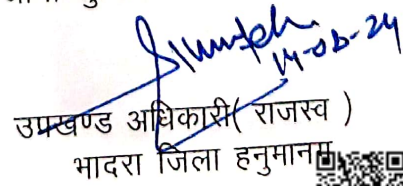 14-08-24
उपखण्ड अधिकारी( राजस्व )
भादरा जिला हनुमानग